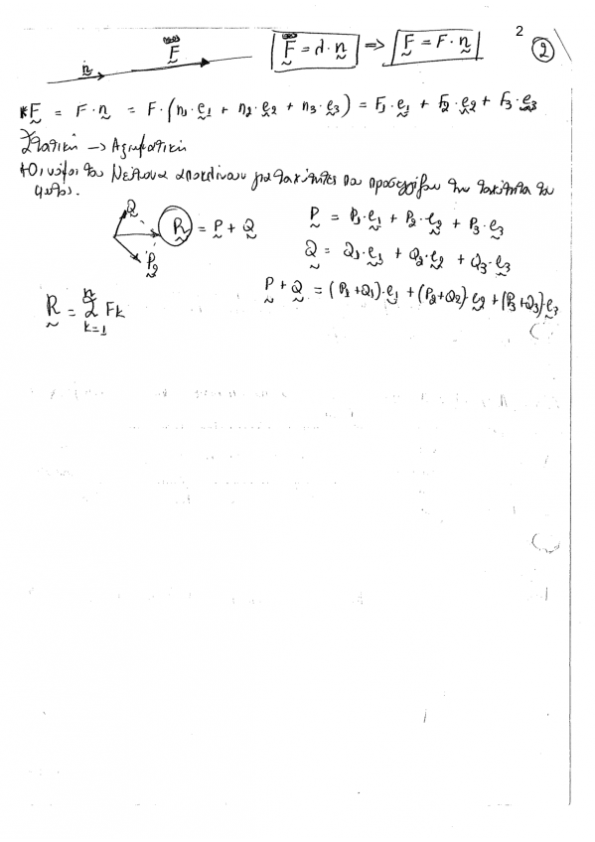 2
②
n F F = λ · n => F = F · n
*F = F · n = F · (n1 · e1 + n2 · e2 + n3 · e3) = F1 · e1 + F2 · e2 + F3 · e3
Στατική -> Αξιωματική
*Οι νόμοι του Νεύτωνα αποκλίνουν για ταχύτητες που προσεγγίζουν την ταχύτητα του
φωτός.
Q R = P + Q P = P1 · e1 + P2 · e2 + P3 · e3
P2 Q = Q1 · e1 + Q2 · e2 + Q3 · e3
P + Q = (P1 + Q1) · e1 + (P2 + Q2) · e2 + (P3 + Q3) · e3
R = n Σ k=1 Fk